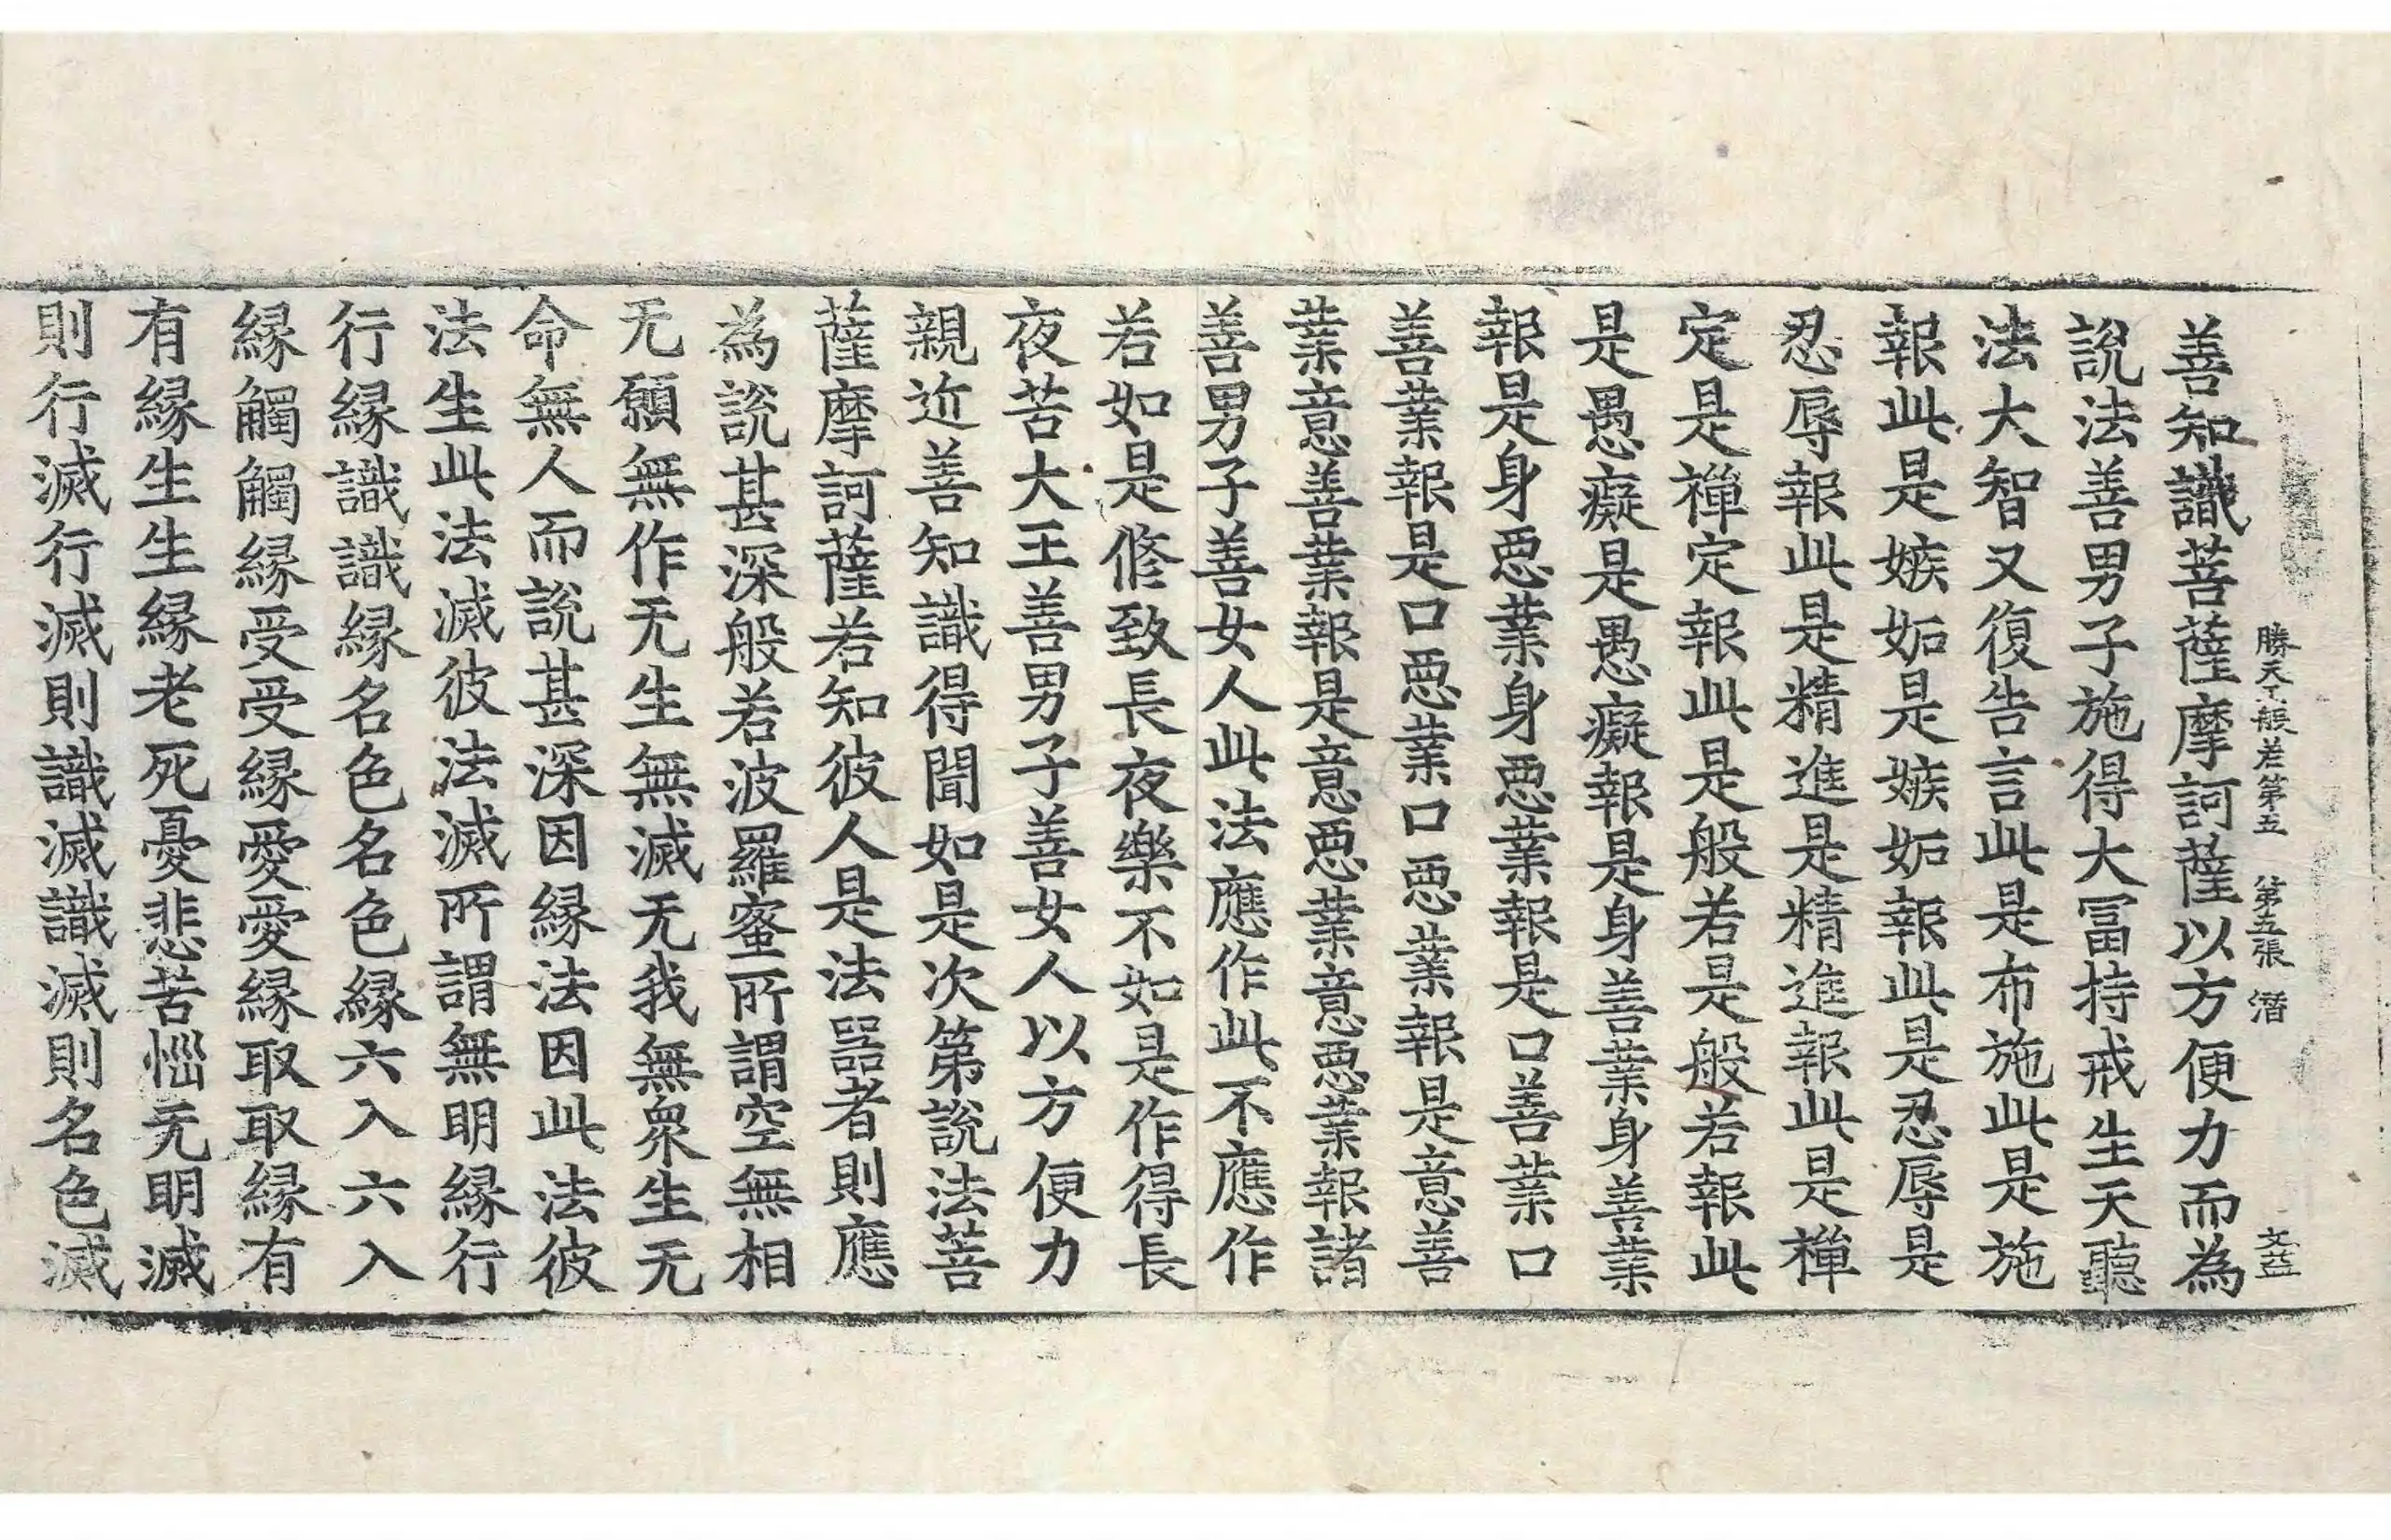 勝天王般若第五 第五張 潛 文益
善知識菩薩摩訶薩以方便力而為
說法善男子施得大冨持戒生天聽
法大智又復告言此是布施此是施
報此是嫉妬是嫉妬報此是忍辱是
忍辱報此是精進是精進報此是禪
定是禪定報此是般若是般若報此
是愚癡是愚癡報是身善業身善業
報是身惡業身惡業報是口善業口
善業報是口惡業口惡業報是意善
業意善業報是意惡業意惡業報諸
善男子善女人此法應作此不應作
若如是修致長夜樂不如是作得長
夜苦大王善男子善女人以方便力
親近善知識得聞如是次第說法菩
薩摩訶薩若知彼人是法器者則應
為說甚深般若波羅蜜所謂空無相
无願無作无生無滅无我無衆生无
命無人而說甚深因縁法因此法彼
法生此法滅彼法滅所謂無明縁行
行縁識識縁名色名色縁六入六入
縁觸觸縁受受縁愛愛縁取取縁有
有縁生生縁老死憂悲苦惱无明滅
則行滅行滅則識滅識滅則名色滅